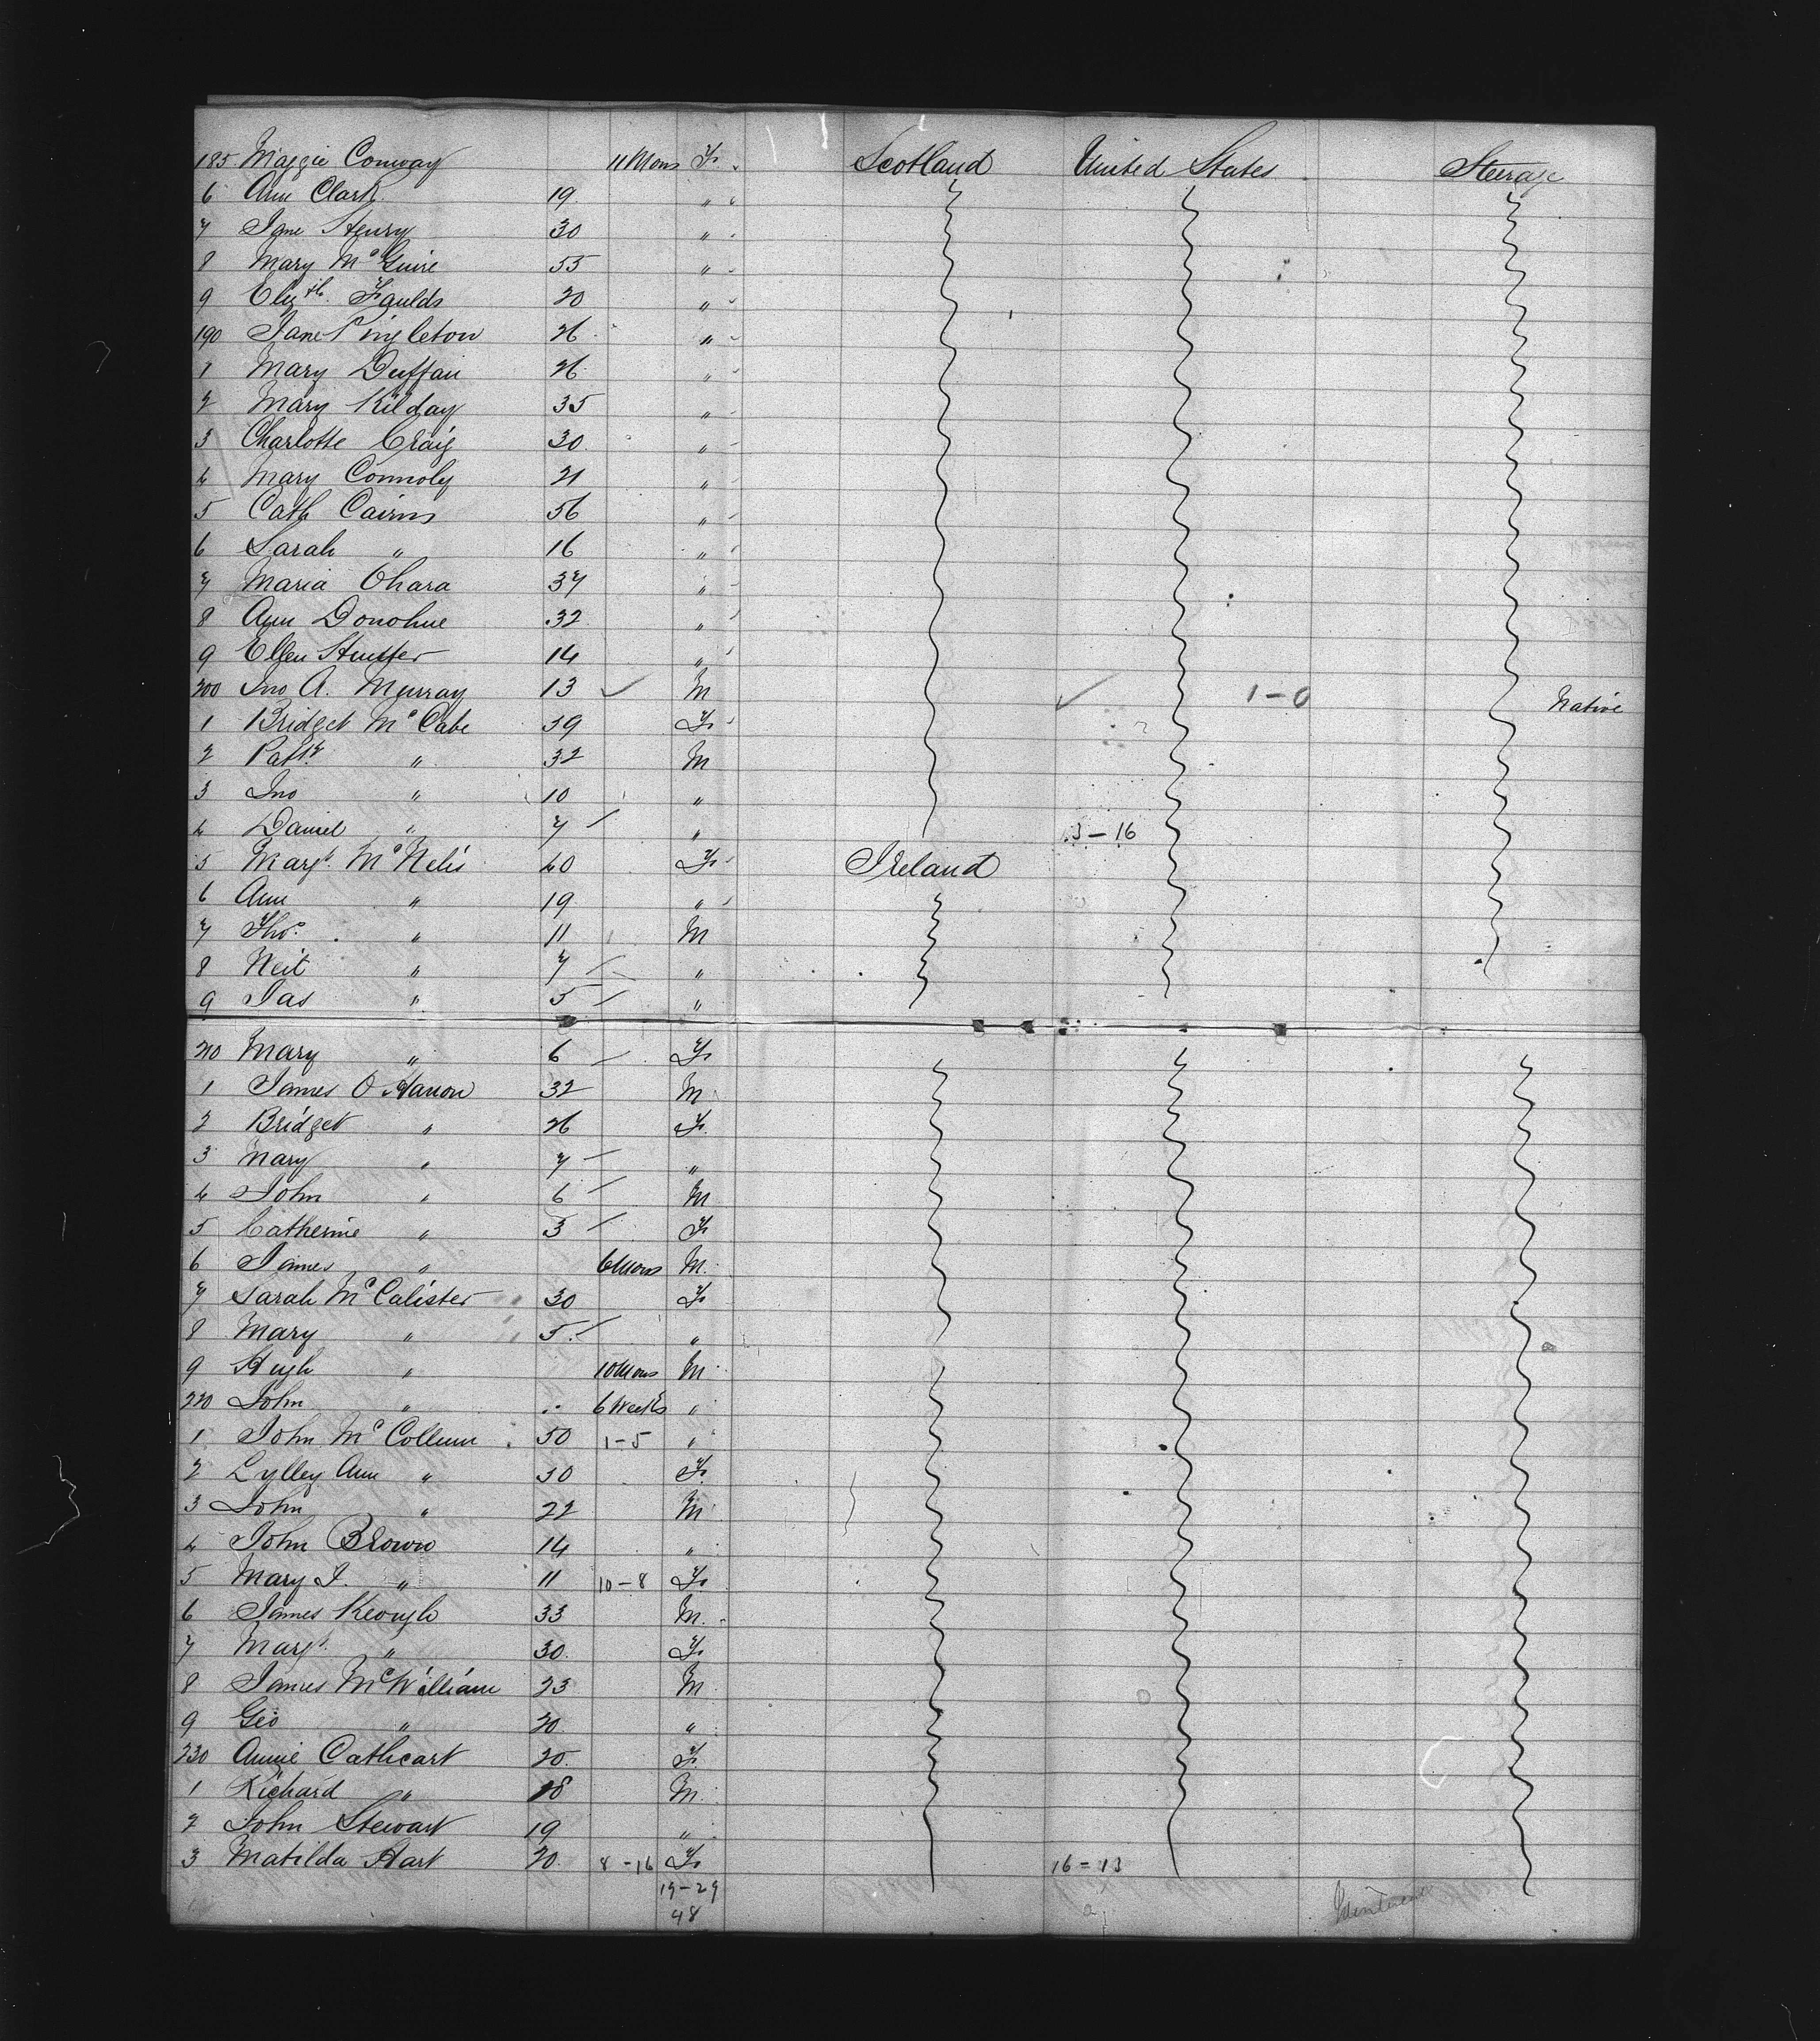 185 Maggie Conway 11 Mons F. Scotland United States Steerage
6 Ann Clark 19 "
7 Jane Henry 30 "
8 Mary McGuire 55 "
9 Elizth. Faulds 20 "
190 Jane Singleton 26 "
1 Mary Duffan 26 "
2 Mary Kilday 35 "
3 Charlotte Craig 30 "
4 Mary Connoly 21 "
5 Cath Cairns 56 "
6 Sarah " 16 "
7 Maria Ohara 37 "
8 Ann Donohue 32 "
9 Ellen 14 "
200 Jno A. Murray 13 ✓ M ✓ 1-0 Native
1 Bridget McCabe 39 F
2 Patk. " 32 M
3 Jno " 10 "
4 Daniel " 7 " 3-16
5 Margt. McNelis 40 F Ireland
6 Ann " 19 "
7 Thos. " 11 M
8 Neil " 7 "
9 Jas " 5 "
210 Mary " 6 F
1 James O Hanon 32 M
2 Bridget " 26 F.
3 Mary " 7 "
4 John " 6 M
5 Catherine " 3 F
6 James " 6 Mons M.
7 Sarah McCalister 30 F
8 Mary " 5 "
9 Hugh " 10 Mons M
220 John " 6 Weeks "
1 John McCollum 50 1-5 "
2 Lylley Ann " 30 F.
3 John " 22 M
4 John Brown 14 "
5 Mary J. " 11 10-8 F
6 James Keough 33 M.
7 Margt. " 30 F
8 James McWilliam 23 M
9 Geo " 20 "
230 Annie Cathcart 20 F.
1 Richard " 18 M.
2 John Stewart 19 "
3 Matilda Hart 20 8-16 F 16=13
19-29
48